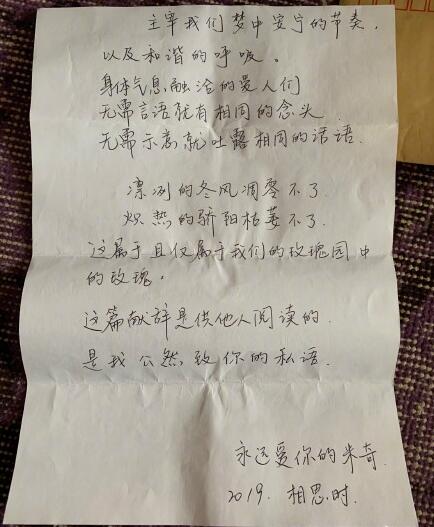 主宰我们梦中安宁的节奏,
以及和谐的呼吸。
身体气息融洽的爱人们
无需言语就有相同的念头
无需示意就吐露相同的话语.
凛冽的冬风凋零不了.
炽热的骄阳枯萎不了.
这属于且仅属于我们的玫瑰园中
的玫瑰。
这篇献辞是供他人阅读的.
是我公然致你的私语.
永远爱你的米奇.
2019. 相思时.